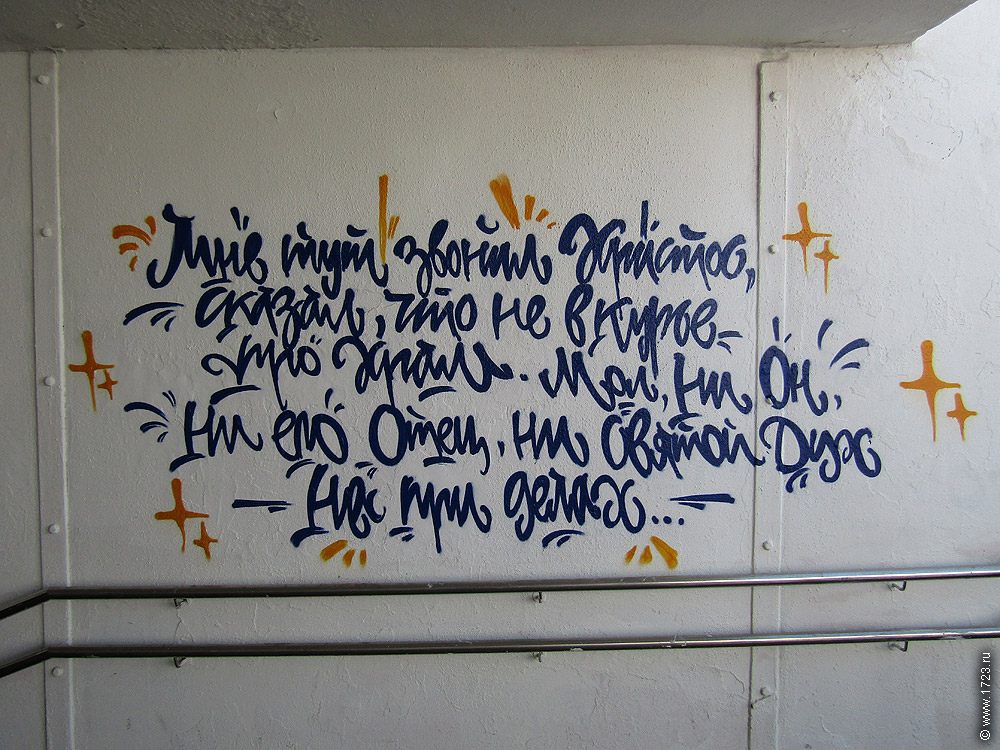 Мне тут звонил Христос,
сказал, что не в курсе
про Храм. Мол, ни Он,
Ни его Отец, ни Святой Дух
— Не при делах...
© www.1723.ru